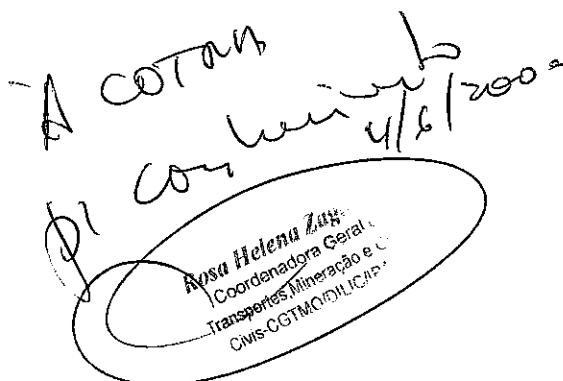 À COTRA
p/ conhecimento
4/6/200
Rosa Helena Zag
Coordenadora Geral
Transportes, Mineração e
Civis-CGTMO/DILIC/